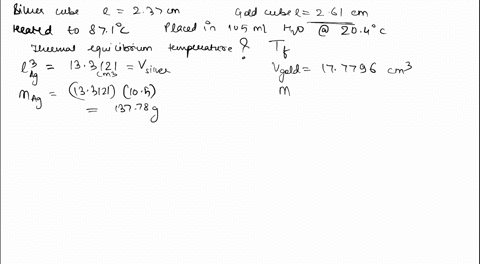 Silver cube l = 2.37 cm Gold cube l = 2.61 cm
Heated to 87.1°C Placed in 105 ml H₂O @ 20.4°C
Thermal equilibrium temperature? T_f
l³_Ag = 13.3121 cm³ = V_silver V_gold = 17.7796 cm³
m_Ag = (13.3121) (10.5) m
= 137.78 g